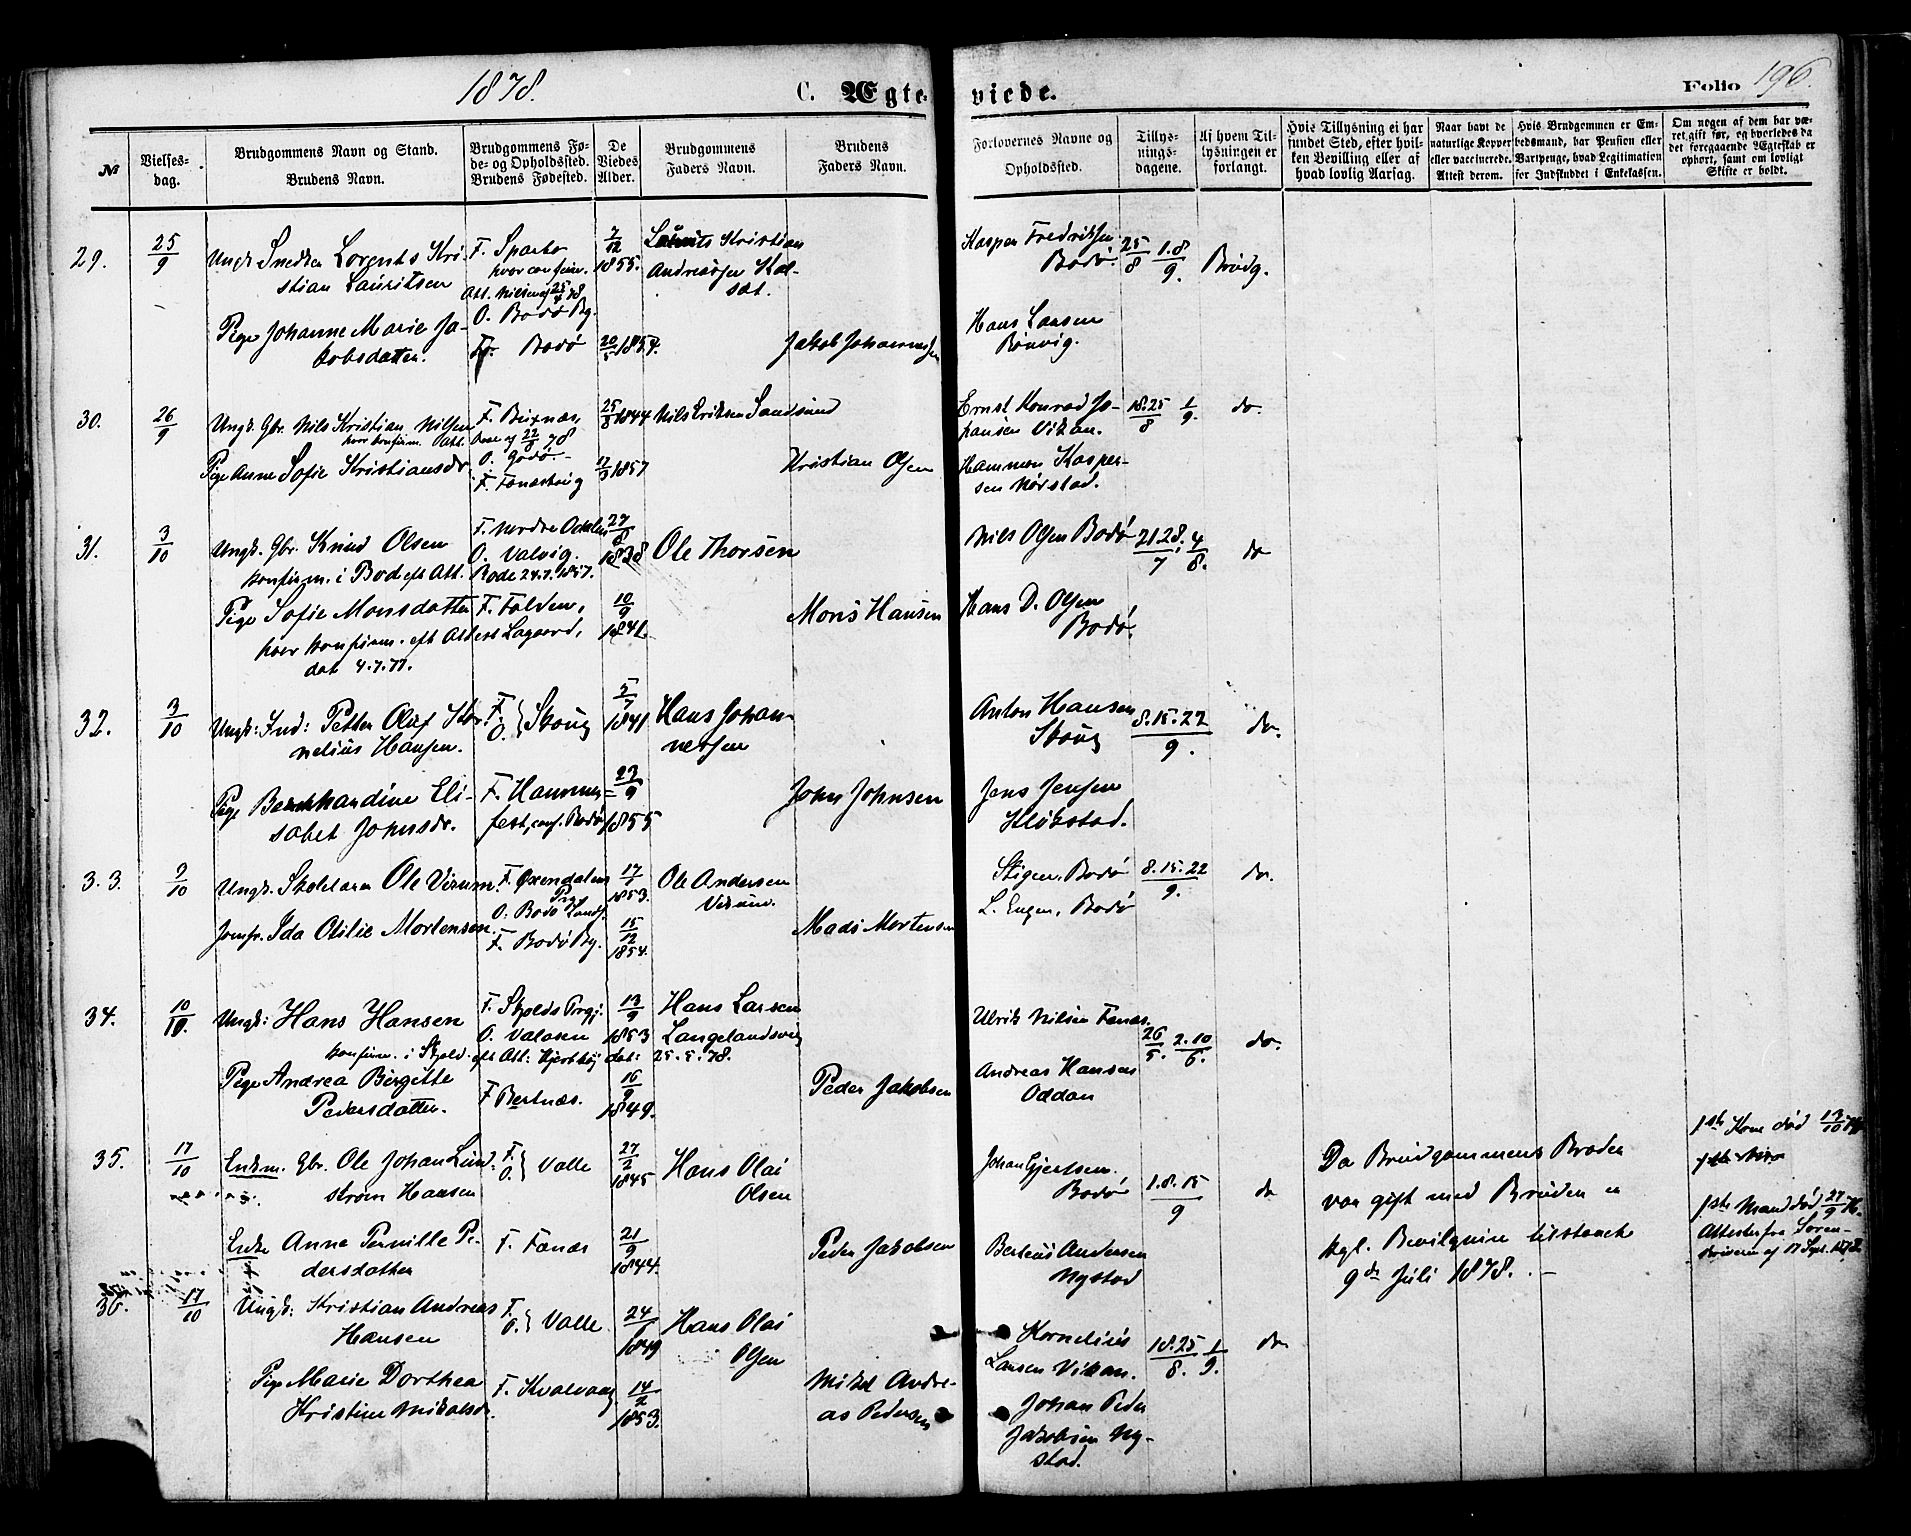 1878.
C. Ægteviede.
Folio 196.
№
Vielses-
dag.
Brudgommens Navn og Stand.
Brudens Navn.
Brudgommens Fø-
de- og Opholdssted.
Brudens Fødested.
De
Viedes
Alder.
Brudgommens
Faders Navn.
Brudens
Faders Navn.
Forlovernes Navne og
Opholdssted.
Tillys-
nings-
dagene.
Af hvem Til-
lysningen er
forlangt.
Hvis Tillysning ei har
fundet Sted, efter hvil-
ken Bevilling eller af
hvad lovlig Aarsag.
Naar havt de
naturlige Kopper
eller vaccinerede.
Attest derom.
Hvis Brudgommen er Em-
bedsmand, har Pension eller
Vartpenge, hvad Legitimation
for Indskuddet i Enkekassen.
Om nogen af dem har væ-
ret gift før, og hvorledes da
det foregaaende Ægteskab er
ophørt, samt om lovligt
Skifte er holdt.
29.
25/9
Ungk. Snedker Lorents Kri-
stian Lauritsen
F. Sparbo
hvor confirm.
Att. Nilsen af 25/4 78
O. Bodø By.
7/12 1855.
Laurits Kristian
Andreasen Kol-
sæt.
Kasper Fredriksen
Bodø.
25/8 1.8/9.
Brudg.
Pige Johanne Marie Ja-
kobsdatter.
F. Bodø
20/5 1854.
Jakob Johannessen
Hans Larsen
Rønvig.
30.
26/9
Ungk. Gbr. Nils Kristian Nilsen
hvor konfirm.
F. Beiernæs,
22/8 78
O. Godø.
25/8 1844
Nils Eriksen Sandsund
Ernst Konrad Jo-
hansen Vikan.
18.25/8 1/9.
do.
Pige Anne Sofie Kristiansdr.
F. Fønæsvig
17/3 1857
Kristian Olsen
Hammon Kasper-
sen Nørstad.
31.
3/10
Ungk. Gbr. Knud Olsen
konfirm. i Bod eft Att.
F. Nordre Odalen
O. Valvig.
Bode 24.7.1857.
27/8 1838
Ole Thorsen
Nils Olsen Bodø
21.28/7. 4/8.
do
Pige Sofie Monsdatter
hvor konfirm. eft Attest Lagaard,
dat 4.7.77.
F. Folden,
10/9 1841.
Mons Hansen
Hans D. Olsen
Bodø.
32.
3/10
Ungk: Ind: Petter Oluf Kor-
nelius Hansen.
F. O. } Skoug
5/7 1841
Hans Johan-
nessen
Anton Hansen
Skoug
8.15.22/9.
do.
Pige Bernhardine Eli-
sabet Johnsdr.
F. Hammer-
fest, conf. Bodø
23/9 1855
John Johnsen
Jens Jensen
Kløkstad.
33.
9/10
Ungk. Skolelærer Ole Virum.
F. Øxendalen
O. Bodø Landsf.
17/1 1853.
Ole Andersen
Virum.
Stigen, Bodø
L. Engen, Bodø
8.15.22/9.
do.
Jomfr. Ida Otilie Mortensen.
F. Bodø By.
15/12 1854.
Mads Mortensen
34.
10/10.
Ungk: Hans Hansen
konfirm. i Skjold eft Att: Hjorthøj dat: 25.5.78.
F. Skjolds Prgj.
O. Valosen
13/9 1853
Hans Larsen
Langelandsvig
Ulrik Nilsen Fenæs
26/5. 2.10/6.
do.
Pige Andrea Birgitte
Pedersdatter.
F. Bertnæs.
16/9 1849.
Peder Jakobsen
Andreas Hansen
Oddan
35.
17/10
Enkm. Gbr. Ole Johan Lund-
strøm Hansen
F. O. } Valle
27/2 1845
Hans Olai
Olsen
Johan Gjertsen
Bodø
1.8.15/9
do
Da Brudgommens Broder
var gift med Bruden er
kgl. Bevilgning tilstaaet
9de Juli 1878.
1ste Kone død 13/10
1ste Mand død 27/9
Attester fra Soren-
skriveren af 17 Sept. 1878.
Enke Anne Pernille Pe-
dersdatter
F. Fenæs
21/9 1844.
Peder Jakobsen
Berteus Andersen
Nystad
36.
17/10
Ungk: Kristian Andreas
Hansen
F. O. } Valle
24/1 1849
Hans Olai
Olsen
Kornelius
Larsen Vikan.
18.25/8. 1/9.
do
Pige Marie Dorthea
Kristine Mikalsdr.
F. Kvalvaag
14/2 1853.
Mikal Andre-
as Pedersen
Johan Peder
Jakobsen Ny-
stad.